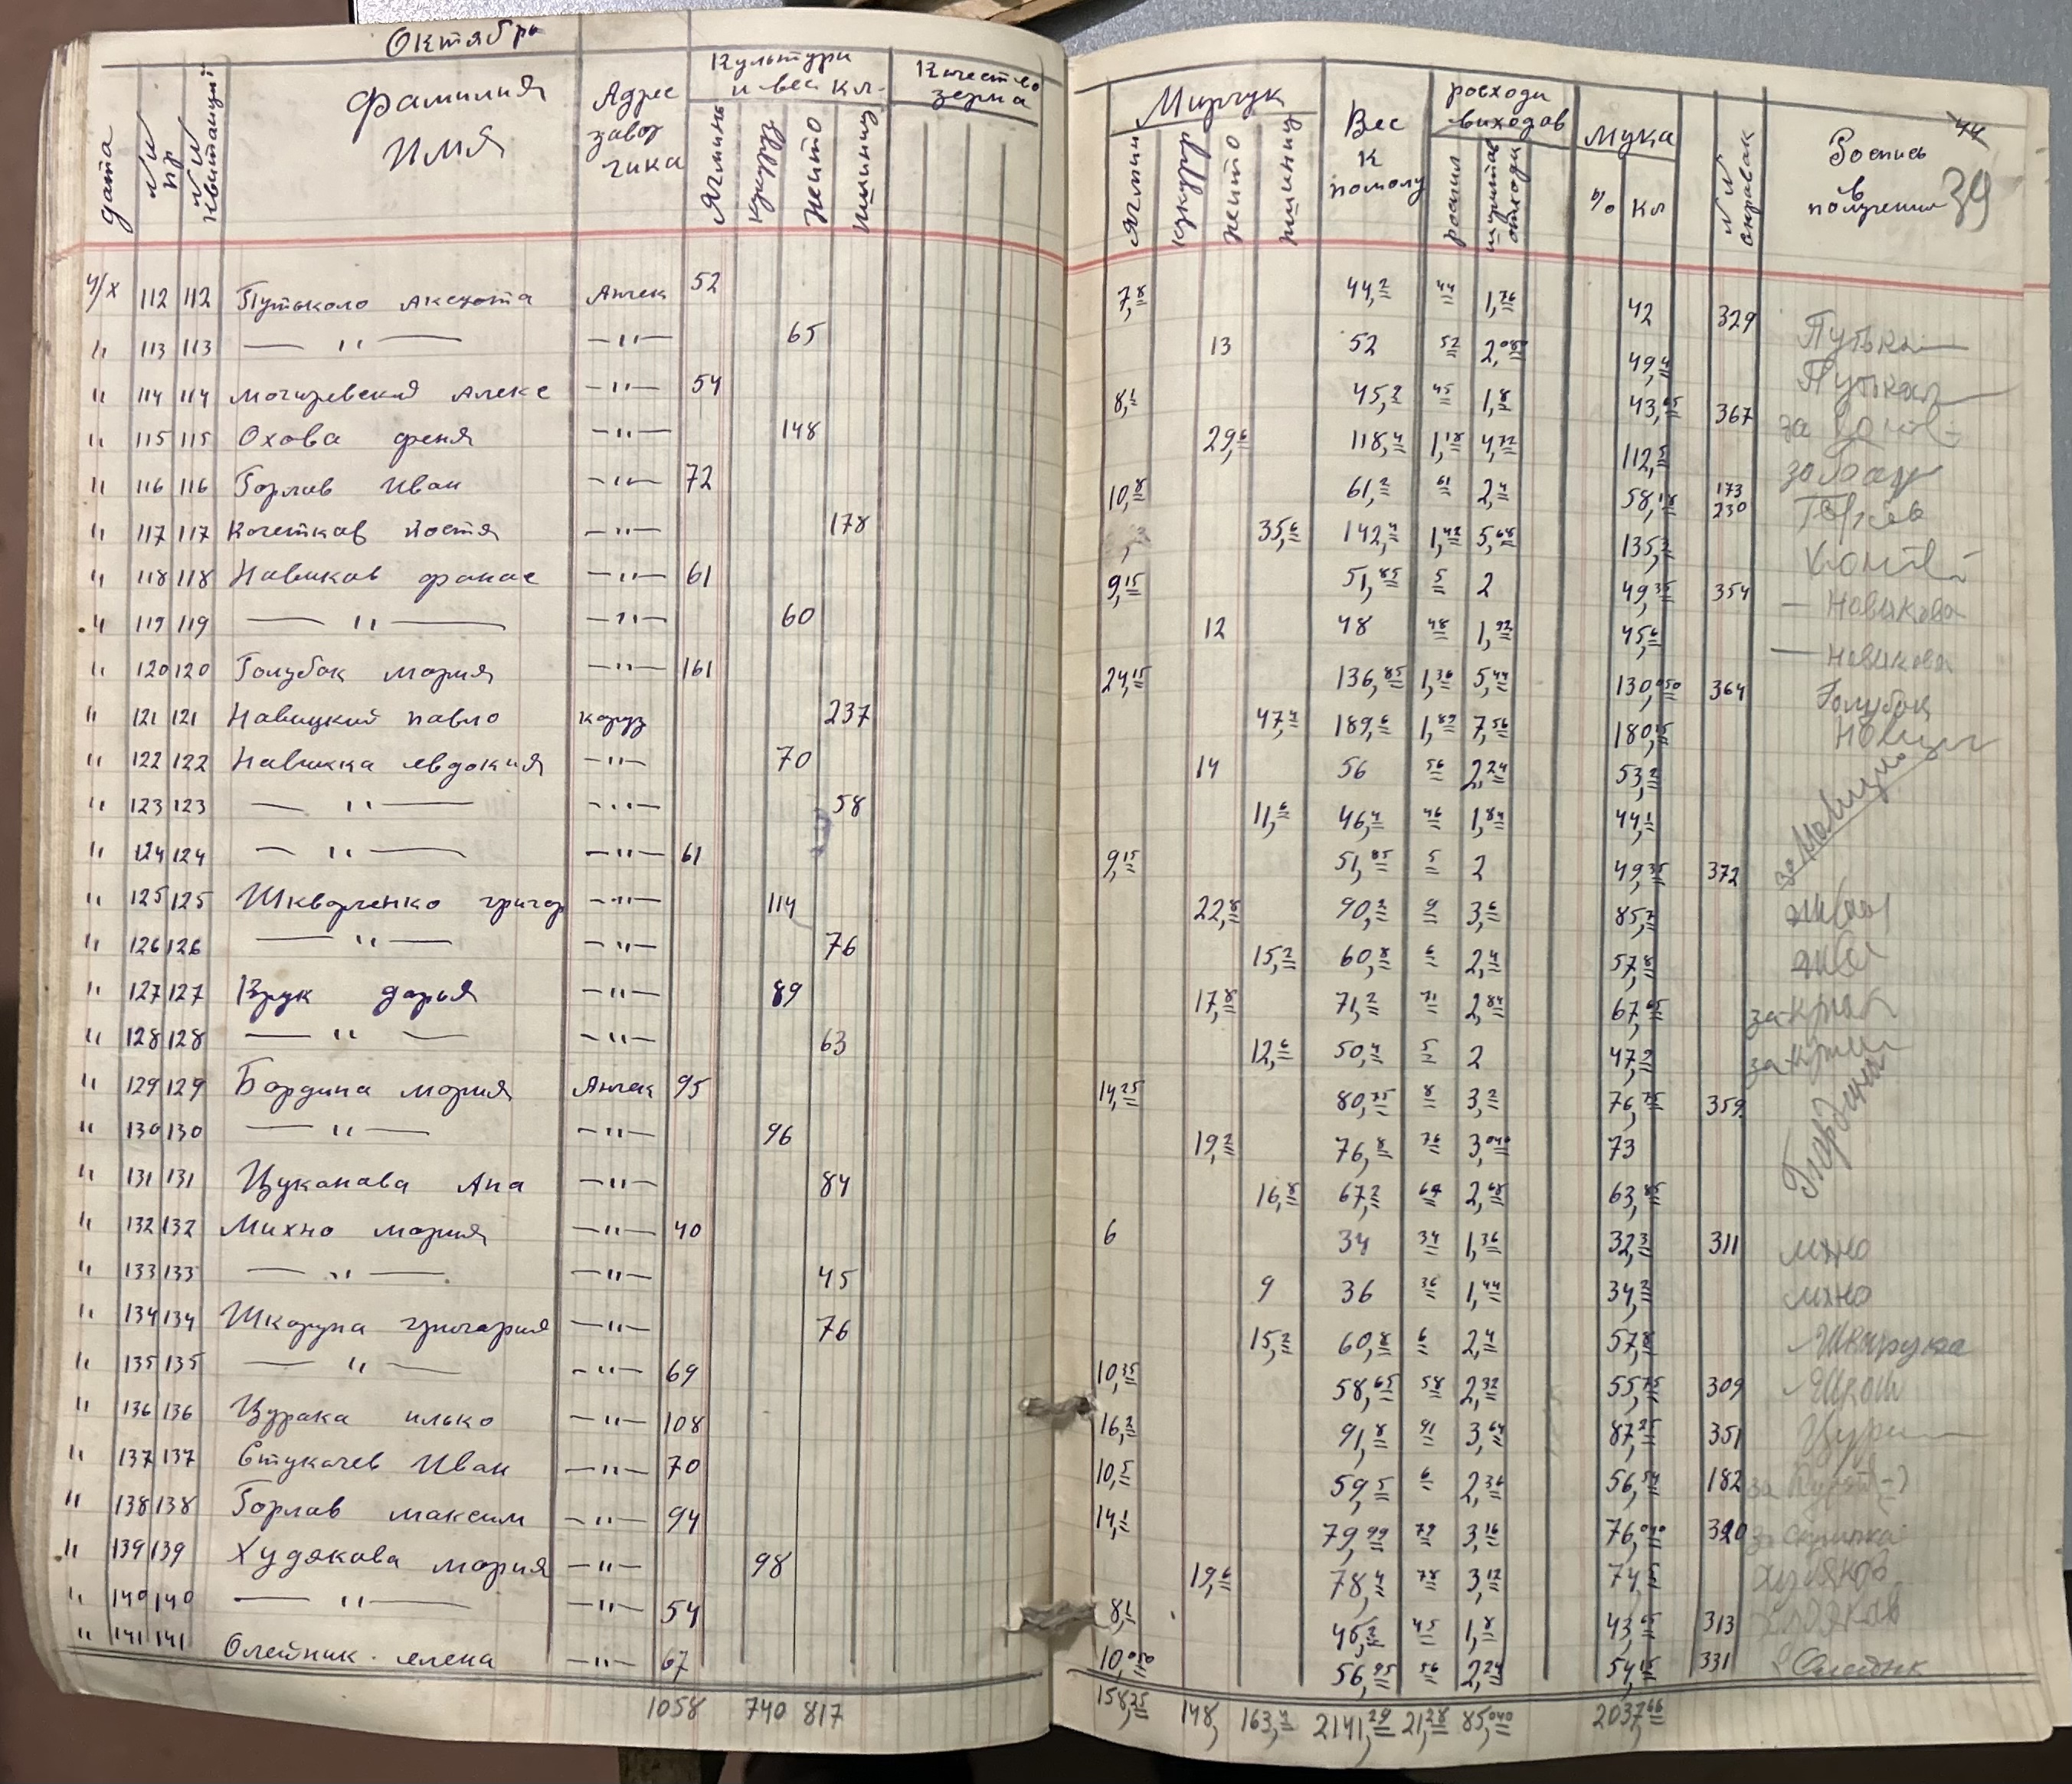 Октябрь
дата
№№ пр
№№ квитанциї
Фамилия Имя
Адрес завозчика
Культури и вес кл.
Ячминь
кукурудз
нетто
пшиниц
Качество зерна
Мирчук
Ячмин
кукурудз
нетто
пшиниц
Вес к помолу
росходи виходов
роспил
отходи
Мука
% Кл
№№ справок
Роспись в получении
44
39
4/X 112 112 Путьколо Аксюта Анчек 52 7,8 44,2 44 1,76 42 329 Путька
" 113 113 — " — — " — 65 13 52 52 2,080 49,4 Путькал
" 114 114 могиревский Алекс — " — 54 8,1 45,2 45 1,8 43,05 367 за
" 115 115 Охова феня — " — 148 29,6 118,4 1,18 4,72 112,5 за
" 116 116 Горлав Иван — " — 72 10,8 61,2 61 2,4 58,18 173 230 Горлов
" 117 117 Кочеткав Костя — " — 178 35,6 142,4 1,42 5,68 135,3
" 118 118 Навиков фанас — " — 61 9,15 51,85 5 2 49,35 354 — Новикова
" 119 119 — " — — " — 60 12 48 48 1,92 45,6 — Новикова
" 120 120 Голубок мория — " — 161 24,15 136,85 1,36 5,44 130,050 364 Голубок
" 121 121 Навицкий павло коруз 237 47,4 189,6 1,89 7,56 180,15 Новиц
" 122 122 Навицка евдокия — " — 70 14 56 56 2,24 53,2
" 123 123 — " — — " — 58 11,6 46,4 46 1,84 44,1 за Новицку
" 124 124 — " — — " — 61 9,15 51,85 5 2 49,35 372
" 125 125 Шкворченко григор — " — 114 22,8 90,2 9 3,6 85,7
" 126 126 — " — — " — 76 15,2 60,8 6 2,4 57,8
" 127 127 Крук дарья — " — 89 17,8 71,2 71 2,84 67,65 за крук
" 128 128 — " — — " — 63 12,6 50,4 5 2 47,9 за
" 129 129 Бордина мория Анчек 95 14,25 80,75 8 3,2 76,75 359 Бардина
" 130 130 — " — — " — 96 19,2 76,8 76 3,040 73
" 131 131 Цуканава Ана — " — 84 16,8 67,2 67 2,68 63,85
" 132 132 Михно мория — " — 40 6 34 34 1,36 32,3 311 мхно
" 133 133 — " — — " — 45 9 36 36 1,44 34,2 мхно
" 134 134 Шкарупа григория — " — 76 15,2 60,8 6 2,4 57,8 Шкарупа
" 135 135 — " — — " — 69 10,35 58,65 58 2,32 55,75 309 Шкар
" 136 136 Цурака илько — " — 108 16,2 91,8 91 3,64 87,25 351 Цура
" 137 137 Стукачев Иван — " — 70 10,5 59,5 6 2,36 56,54 182 за
" 138 138 Горлав максим — " — 94 14,1 79,99 79 3,16 76,040 320 за Скрипка
" 139 139 Худякова мория — " — 98 19,6 78,4 78 3,12 74,5 Худяков
" 140 140 — " — — " — 54 8,1 45,2 45 1,8 43,05 313 Худяков
" 141 141 Олейник елена — " — 67 10,050 56,95 56 2,24 54,15 331 Олейник
1058 740 817 158,25 148, 163,4 2141,29 21,28 85,040 2037,66